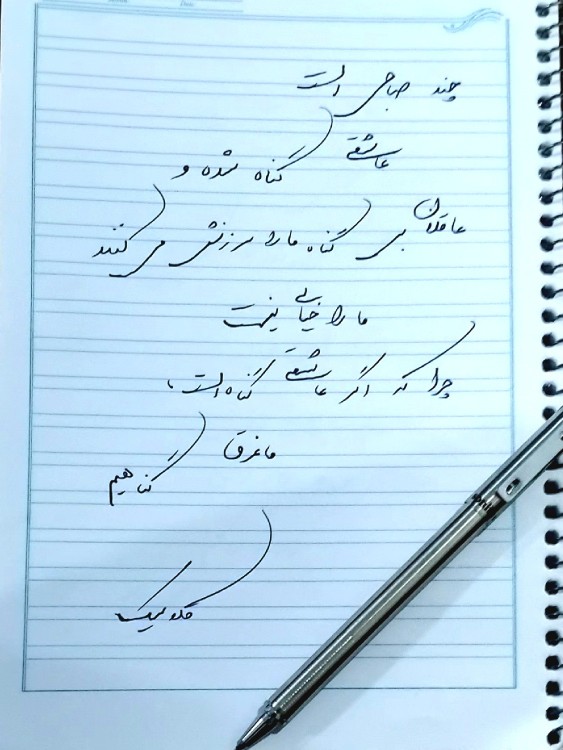 چند صباحی است
عاشقی گناه شده و
عاقلان بی گناه ما را سرزنش می کنند
ما را خیالی نیست
چرا که اگر عاشقی گناه است،
ما غرق
گناهیم